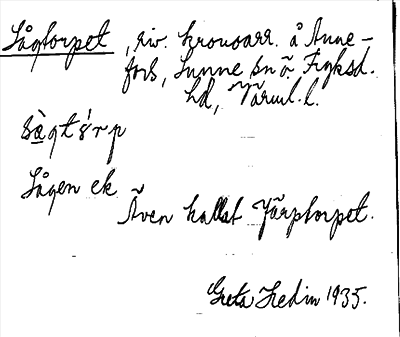 Lågtorpet, riv. kronoarr. å Anne-
fors, Sunne sn o. Fryksd.
hd, Värml. l.
sågtórp
Lågen ek
Även kallat Järptorpet.
Greta Hedin 1935.